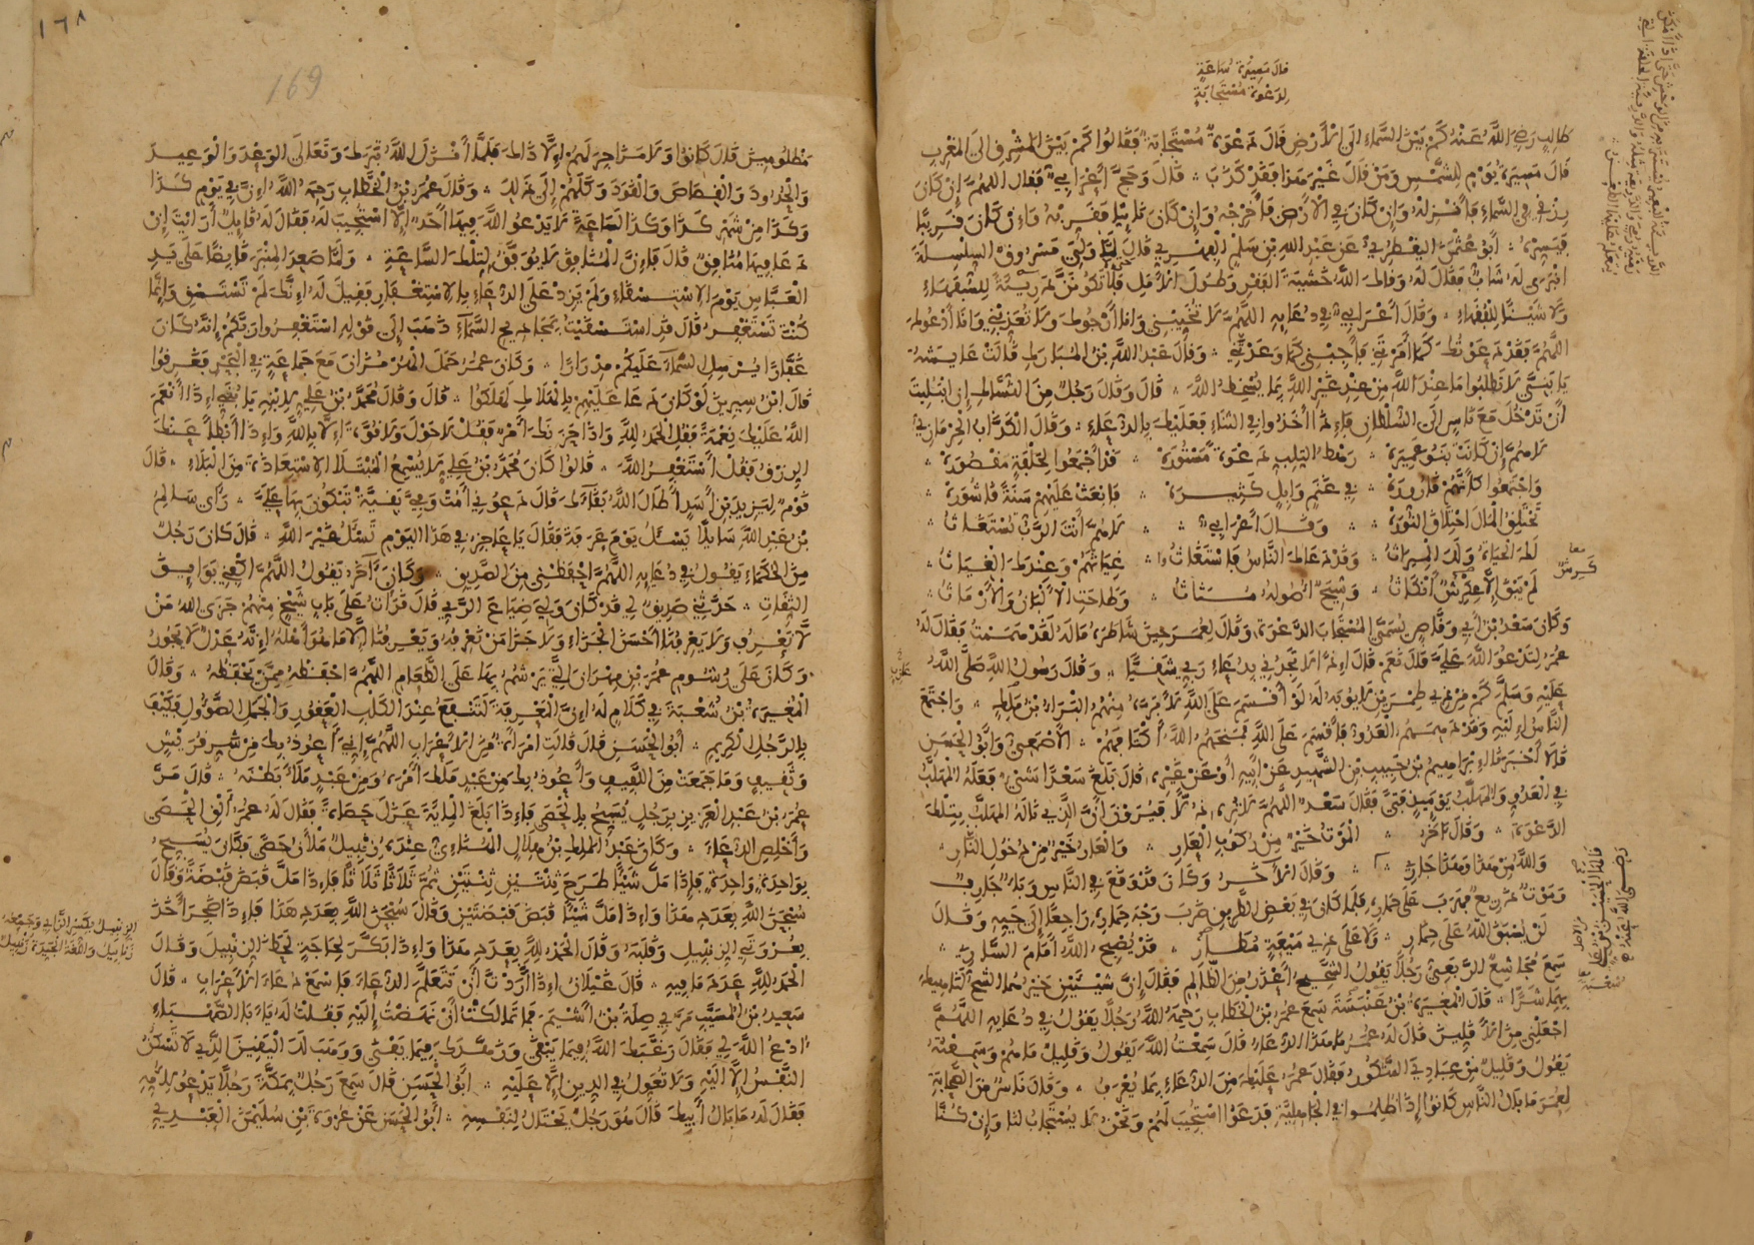 قال مسيرة ساعة
لدعوة مستجابة
طالب رضي الله عنه كم بين السماء الى الارض قال دعوة مستجابة فقالوا كم بين المشرق الى المغرب
قال مسيرة يوم للشمس ومن قال غير هذا فقد كذب قال وحج أعرابي فقال اللهم إن كان
رزقي في السماء فأنزله وإن كان في الأرض فأخرجه وإن كان نائيا فقربه وإن كان قريبا
فيسره أبو عثمن اليقطري عن عبد الله بن سلم الفهري قال لما ولي مسروق السلسلة
انبرى له شاب فقال له وقاك الله خشية الفقر وطول الأمل فلا تكونن دريئة للسفهاء
ولا شينا للفقهاء وقال أعرابي في دعائه اللهم لا تخيبني وانا أرجوك ولا تعذبني وانا أدعوك
اللهم فقد دعوتك كما أمرتني فأجبني كما وعدتني وقال عبد الله بن المبارك قالت عايشة
يا بني لا تطلبوا ما عند الله من عند غير الله بما يسخط الله قال وقال رجل من النساك إن ابتليت
أن تدخل مع ناس الى السلطان فإذا أخذوا في الثناء فعليك بالدعاء وقال الكذاب الحرمازي
لاهم إن كانت بنو عميرة رهط التلب دعوة مستورة قد أجمعوا لحلفة مقصورة
واجتمعوا كأنهم قارورة في غنم وإبل كثيرة فابعث عليهم سنة قاشورة
تحتلق المال احتلاق النورة وقال أعرابي لاهم أنت الرب تستغاث
لك الحياة ولك الميراث وقد دعاك الناس فاستغاثوا غياثهم وعندك الغياث
لم يبق إلا عكرش أنكاث وشيخ أصوله مثاث وطاحت الألبان والأرماث
وكان سعد بن أبي وقاص يسمى المستجاب الدعوة وقال لعمر حين شاطره ماله لقد هممت فقال له
عمر لتدعو الله علي قال نعم قال إذا لا تجدني بدعاء ربي شقيا وقال رسول الله صلى الله
عليه وسلم كم من ذي طمرين لا يوبه له لو أقسم على الله لأبره منهم البراء بن ملك واجتمع
الناس إليه وقد دهمهم العدو فأقسم على الله فمنحهم الله أكتافهم الأصمعي وأبو الحسن
قالا أخبرنا إبراهيم بن حبيب بن الشهيد عن أبيه أو عن غيره قال بلغ سعدا شيء فعله المهلب
في العدو والمهلب يومئذ فتى فقال سعد اللهم لا تره ذلا فيرون أن الذي ناله المهلب بتلك
الدعوة وقال آخر الموت خير من ركوب العار والعار خير من دخول النار
والله من هذا وهذا جاري وقال الآخر وكان قد وقع في الناس وباء جارف
وموت ذريع فهرب على حماره فلما كان في بعض الطريق ضرب وجه حماره راجعا إلى حيه وقال
لن يسبق الله على حمار ولا على ذي ميعة مطار قد يصبح الله أمام الساري
سمع مجاشع الربعي رجلا يقول الشحيح أعذر من الظالم فقال إن شيئين خيرهما الشح لناهيك
بهما شرا قال المغيرة بن عنبسة سمع عمر بن الخطاب رحمه الله رجلا يقول في دعائه اللهم
اجعلني من الأقلين قال له عمر ما هذا الدعاء قال سمعت الله يقول وقليل ما هم وسمعته
يقول وقليل من عبادي الشكور فقال عمر عليك من الدعاء بما يعرف وقال ناس من الصحابة
لعمر ما بال الناس كانوا إذا ظلموا في الجاهلية فدعوا استجيب لهم ونحن لا يستجاب لنا وإن كنا
١٦٨
169
مظلومين قال كانوا ولا مزاجر لهم إلا ذاك فلما أنزل الله تبرك وتعالى الوعد والوعيد
والحدود والقصاص والقود وكلهم إلى ذلك وقال عمر بن الخطاب رحمه الله إن في يوم كذا
وكذا من شهر كذا وكذا لساعة لا يدعو الله فيها أحد إلا استجيب له فقال له قايل أرأيت إن
دعا فيها منافق قال فإن المنافق لا يوفق لتلك الساعة ولما صعد المنبر قابضا على يد
العباس يوم الاستسقاء ولم يزد على الدعاء بالاستغفار فقيل له إنك لم تستسق وإنما
كنت تستغفر قال قد استسقيت بمجاديح السماء ذهب إلى قوله استغفروا ربكم إنه كان
غفارا يرسل السماء عليكم مدرارا وكان عمر حمل الهرمزان مع جماعة في البحر فغرقوا
قال ابن سيرين لو كان دعا عليهم بالهلاك لهلكوا قال وقال محمد بن علي لابنه يا بني إذا أنعم
الله عليك نعمة فقل الحمد لله وإذا حزبك أمر فقل لا حول ولا قوة إلا بالله وإذا أبطأ عنك
الرزق فقل أستغفر الله قالوا كان محمد بن علي لا يسمع المبتلا الاستعاذة من البلاء قال
قوم ليزيد بن أسد أطال الله بقاءك قال دعوني أمت وفي بقية تبكون بها علي رأى سالم
بن عبد الله سايلا يسئل يوم عرفة فقال يا عاجز في هذا اليوم تسئل غير الله قال كان رجل
من الحكماء يقول في دعائه اللهم احفظني من الصديق وكان آخر يقول اللهم اكفني بوايق
الثقات حدثني صديق لي قد كان ولي ضياع الري قال قرأت على باب شيخ منهم جزى الله من
لا يعرف ولا يعرفنا أحسن الجزاء ولا جزا من نعرفه ويعرفنا إلا ما هو أهله إنه عدل لا يجور
وكان على رشوم عمر بن مهران التي يرشم بها على الطعام اللهم احفظه ممن يحفظه وقال
المغيرة بن شعبة في كلام له إن المعرفة لتنفع عند الكلب العقور والجمل الصؤول فكيف
بالرجل الكريم أبو الحسن قال قالت امرأة من الأعراب اللهم إني أعوذ بك من شر قريش
وثقيف وما جمعت من اللفيف وأعوذ بك من عبد ملك أمره ومن عبد ملأ بطنه قال مر
عمر بن عبد العزيز برجل يسبح بالحصى فإذا بلغ المائة عزل حصاة فقال له عمر ألق الحصى
وأخلص الدعاء وكان عبد الملك بن هلال الهنائي عنده زنبيل ملآن حصى فكان يسبح
بواحدة واحدة فإذا مل شيئا طرح ثنتين ثنتين ثم ثلاثا ثلاثا فإذا مل قبض قبضة وقال
سبحن الله بعدد هذا وإذا مل شيئا قبض قبضتين وقال سبحن الله بعدد هذا فإذا ضجر أخذ
بعروتي الزنبيل وقلبه وقال الحمد لله بعدد هذا وإذا بكر لحاجة لحظ الزنبيل وقال
الحمد لله عدد ما فيه قال غيلان إذا أردت أن تتعلم الدعاء فاسمع دعاء الأعراب قال
سعيد بن المسيب مر بي صلة بن أشيم فما تمالكت أن نهضت إليه فقلت له يا أبا الصهباء
ادع الله لي فقال رغبك الله فيما يبقى وزهدك فيما يفنى ووهب لك اليقين الذي لا تسكن
النفس إلا إليه ولا تعول في الدين إلا عليه أبو الحسن قال سمع رجل بمكة رجلا يدعو لأمه
فقال له ما بال أبيك قال هو رجل يحتال لنفسه أبو الحسن عن عروة بن سليمن العبدي